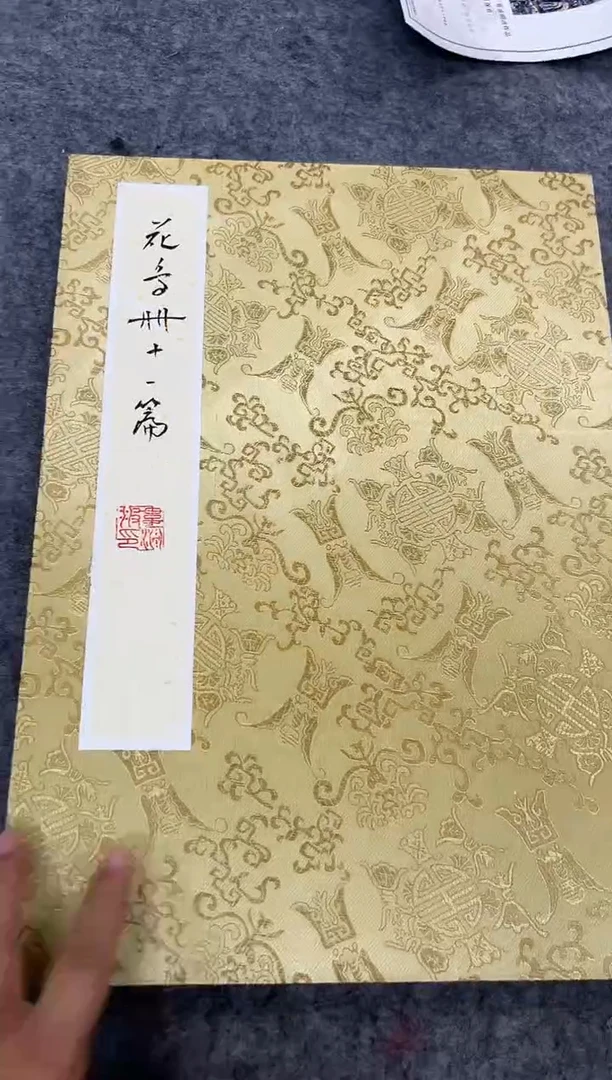 花鸟册十一篇